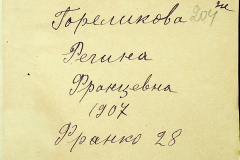 Гореликова
204
Регина
Францевна
1907
Франко 28